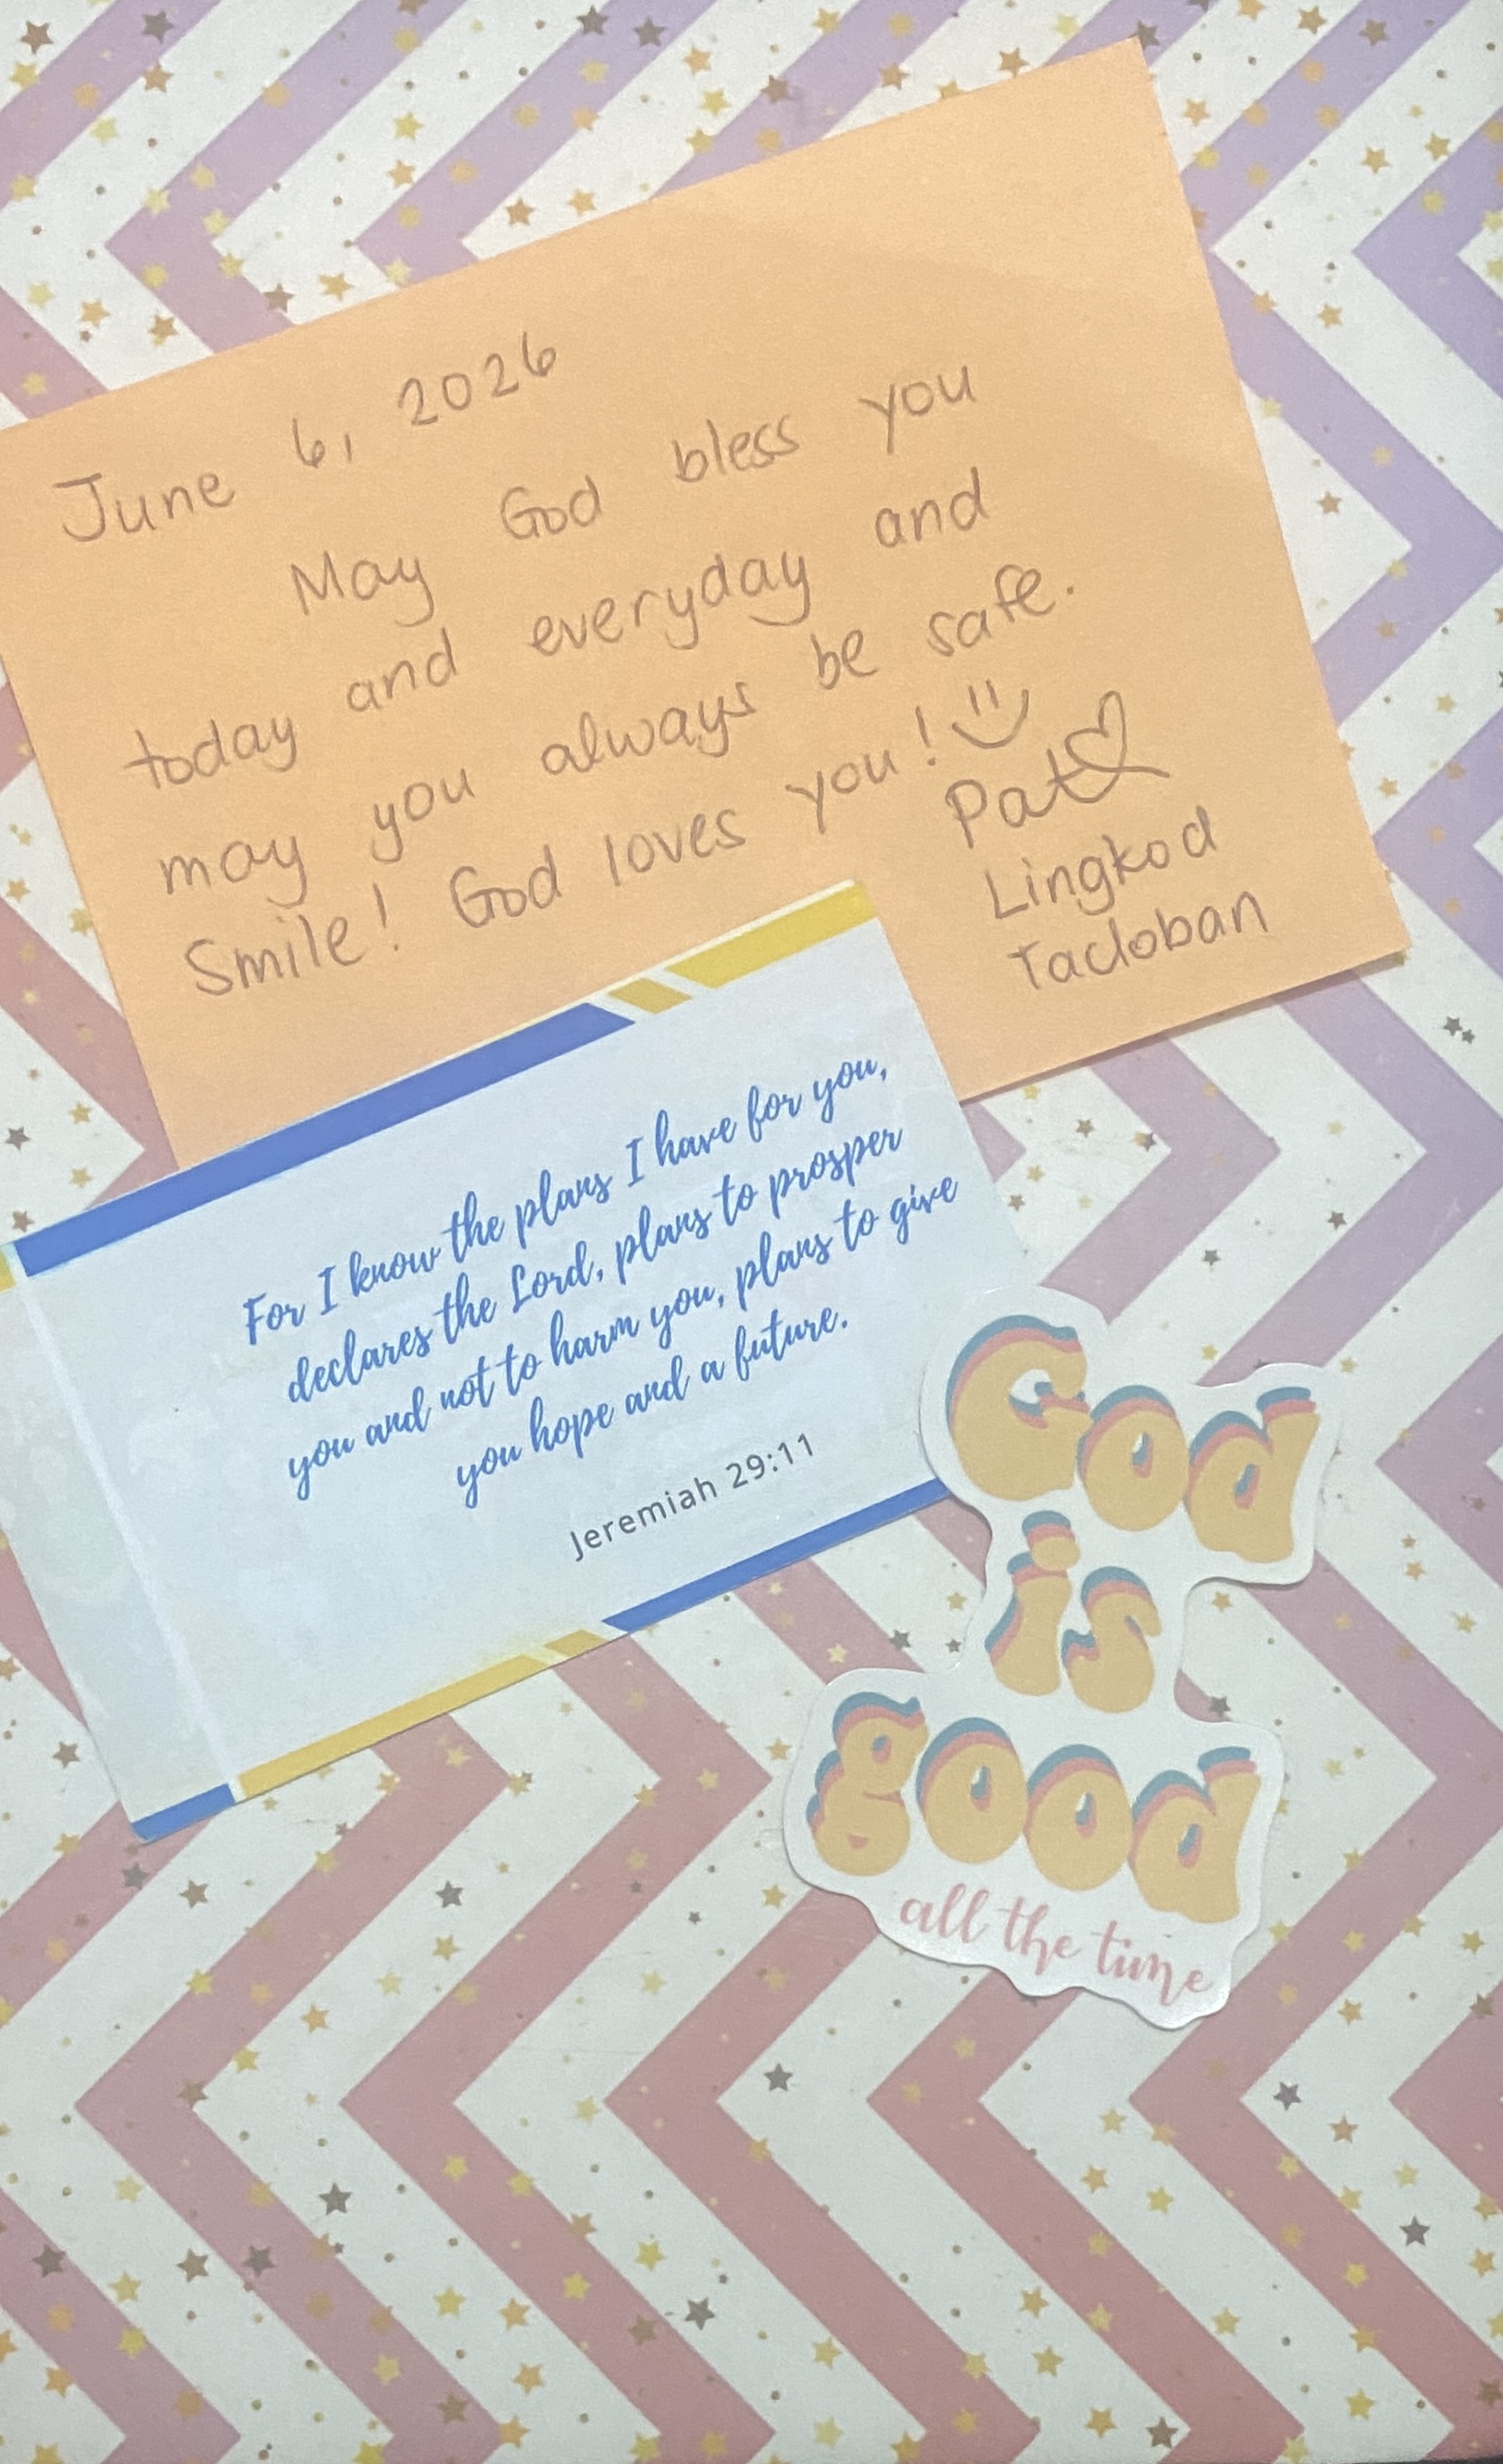 June 6, 2026
May God bless you
today and everyday and
may you always be safe.
Smile! God loves you!
Pat
Lingkod
Tacloban
For I know the plans I have for you,
declares the Lord, plans to prosper
you and not to harm you, plans to give
you hope and a future.
Jeremiah 29:11
God
is
good
all the time